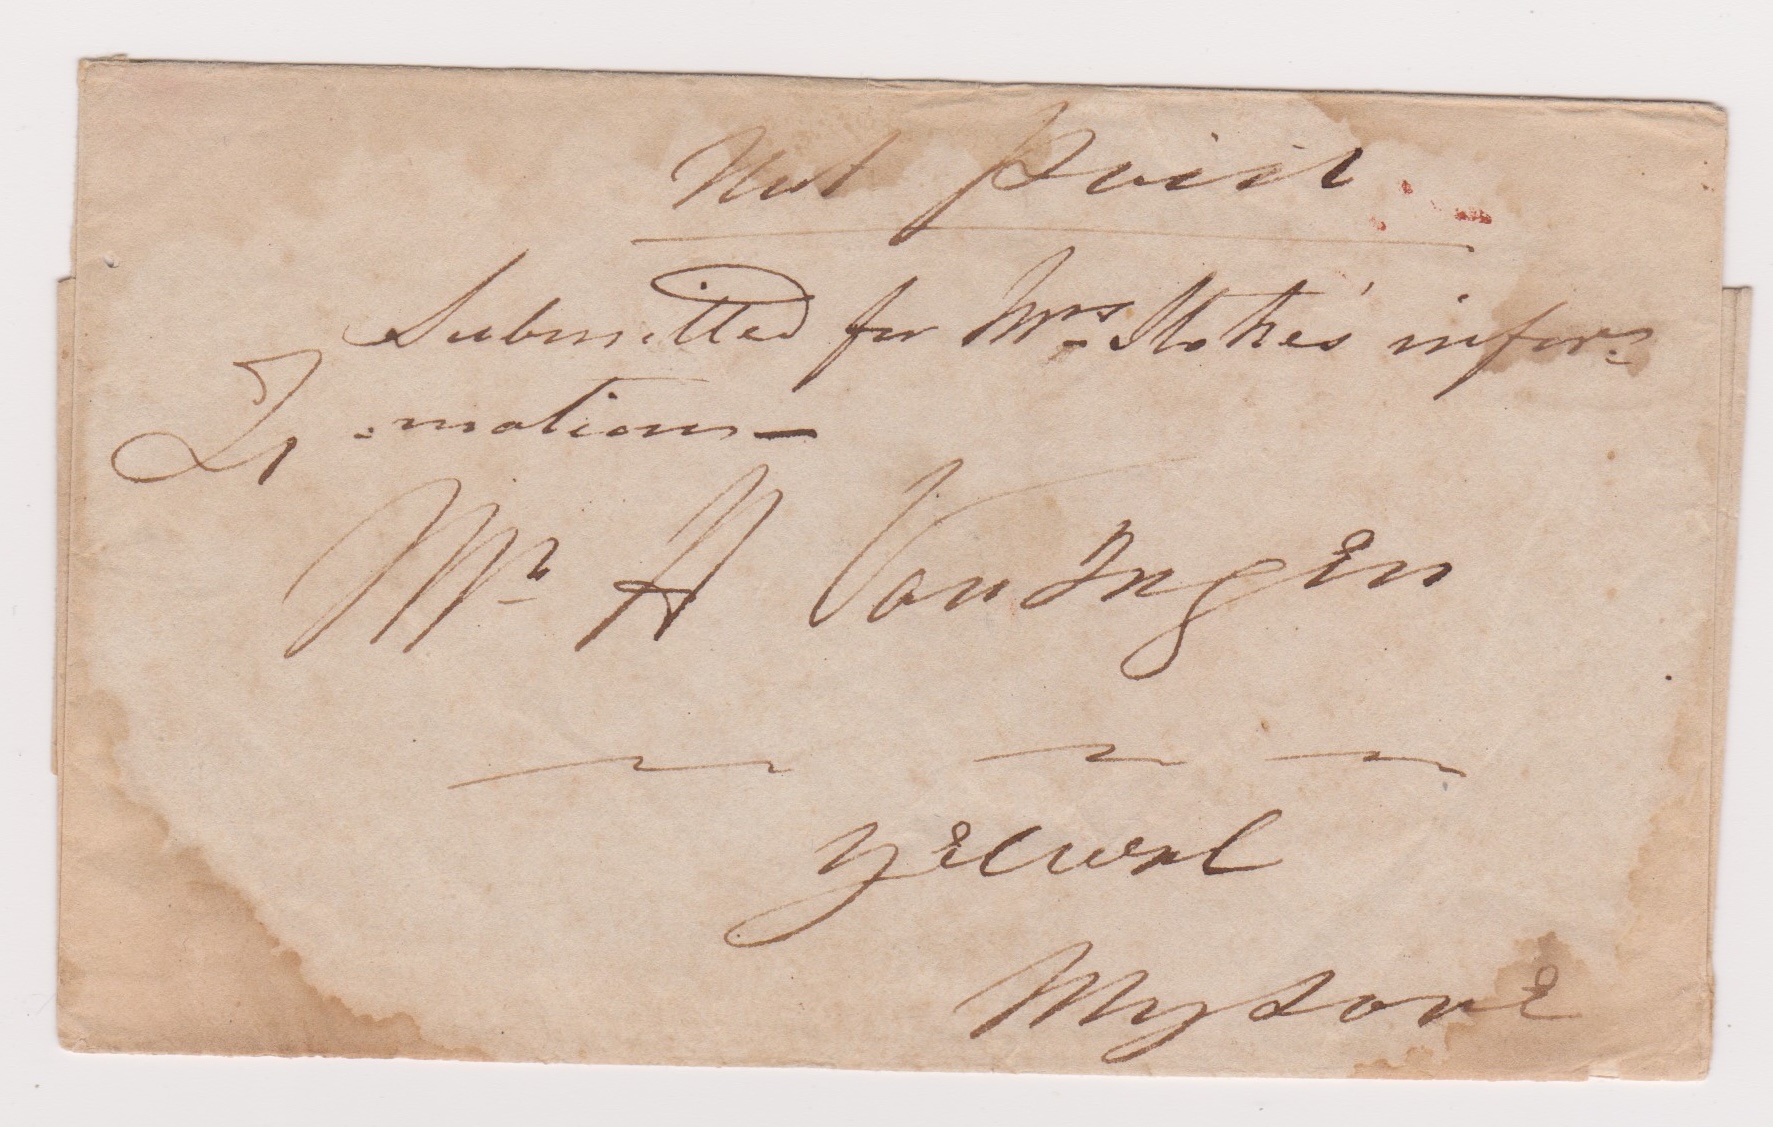 Not Paid.
Submitted for Mrs. Stokes' infor=
=mation—
To
Mr. A VanIngen
Yelwal
Mysore